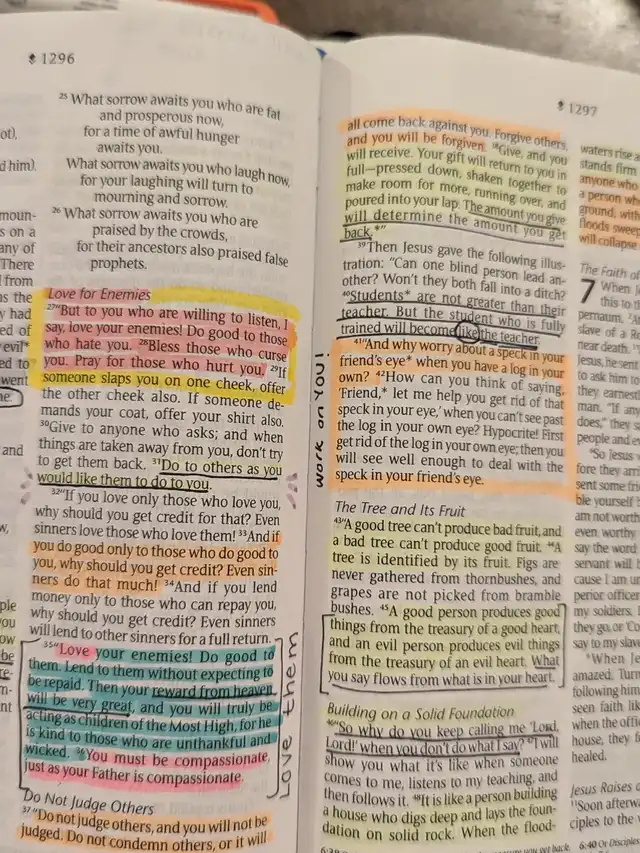 1296
²⁵ What sorrow awaits you who are fat
and prosperous now,
for a time of awful hunger
awaits you.
What sorrow awaits you who laugh now,
for your laughing will turn to
mourning and sorrow.
²⁶ What sorrow awaits you who are
praised by the crowds,
for their ancestors also praised false
prophets.
Love for Enemies
²⁷"But to you who are willing to listen, I
say, love your enemies! Do good to those
who hate you. ²⁸Bless those who curse
you. Pray for those who hurt you. ²⁹If
someone slaps you on one cheek, offer
the other cheek also. If someone de-
mands your coat, offer your shirt also.
³⁰Give to anyone who asks; and when
things are taken away from you, don't try
to get them back. ³¹Do to others as you
would like them to do to you.
³²"If you love only those who love you,
why should you get credit for that? Even
sinners love those who love them! ³³And if
you do good only to those who do good to
you, why should you get credit? Even sin-
ners do that much! ³⁴And if you lend
money only to those who can repay you,
why should you get credit? Even sinners
will lend to other sinners for a full return.
³⁵"Love your enemies! Do good to
them. Lend to them without expecting to
be repaid. Then your reward from heaven
will be very great, and you will truly be
acting as children of the Most High, for he
is kind to those who are unthankful and
wicked. ³⁶You must be compassionate,
just as your Father is compassionate.
Love them
Do Not Judge Others
³⁷"Do not judge others, and you will not be
judged. Do not condemn others, or it will
1297
all come back against you. Forgive others,
and you will be forgiven. ³⁸Give, and you
will receive. Your gift will return to you in
full—pressed down, shaken together to
make room for more, running over, and
poured into your lap. The amount you give
will determine the amount you get
back.*"
³⁹Then Jesus gave the following illus-
tration: "Can one blind person lead an-
other? Won't they both fall into a ditch?
⁴⁰Students* are not greater than their
teacher. But the student who is fully
trained will become like the teacher.
⁴¹"And why worry about a speck in your
friend's eye* when you have a log in your
own? ⁴²How can you think of saying,
'Friend,* let me help you get rid of that
speck in your eye,' when you can't see past
the log in your own eye? Hypocrite! First
get rid of the log in your own eye; then you
will see well enough to deal with the
speck in your friend's eye.
work on you!
The Tree and Its Fruit
⁴³"A good tree can't produce bad fruit, and
a bad tree can't produce good fruit. ⁴⁴A
tree is identified by its fruit. Figs are
never gathered from thornbushes, and
grapes are not picked from bramble
bushes. ⁴⁵A good person produces good
things from the treasury of a good heart,
and an evil person produces evil things
from the treasury of an evil heart. What
you say flows from what is in your heart.
Building on a Solid Foundation
⁴⁶"So why do you keep calling me 'Lord,
Lord!' when you don't do what I say? ⁴⁷I will
show you what it's like when someone
comes to me, listens to my teaching, and
then follows it. ⁴⁸It is like a person building
a house who digs deep and lays the foun-
dation on solid rock. When the flood-
waters rise
stands firm
anyone who
a person
ground, will
floods sweep
will collapse
The Faith of
7 When
this to
pernaum.
slave of a
near death.
Jesus, he sent
to ask him to
they earnestly
man. "If any
does," they
people and
"So Jesus
fore they
sent some
ble yourself
am not worth
even worthy
say the word
servant will
cause I am
perior officer
my soldiers.
they go, or
say to my slave
"When
amazed. Turn
following him
seen faith like
when the
house, they
healed.
Jesus Raises
¹¹Soon afterw
ciples to the
6:40 Or Disciples